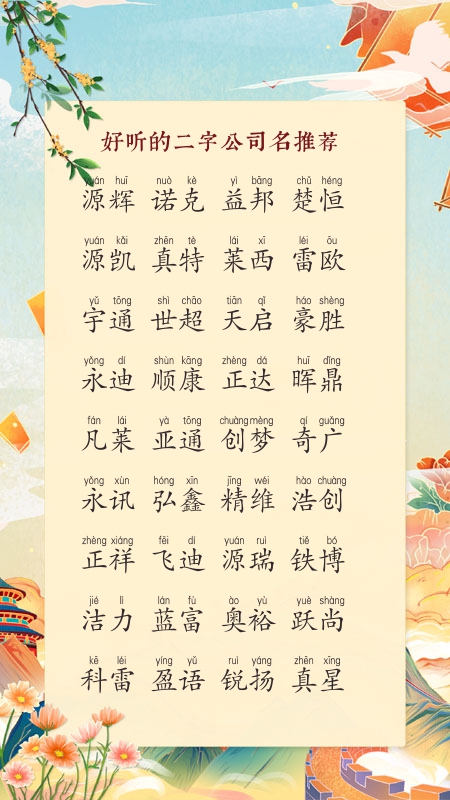 好听的二字公司名推荐
yuán huī nuò kè yì bāng chǔ héng
源辉 诺克 益邦 楚恒
yuán kǎi zhēn tè lái xī léi ōu
源凯 真特 莱西 雷欧
yǔ tōng shì chāo tiān qǐ háo shèng
宇通 世超 天启 豪胜
yǒng dí shùn kāng zhèng dá huī dǐng
永迪 顺康 正达 晖鼎
fán lái yà tōng chuàng mèng qí guǎng
凡莱 亚通 创梦 奇广
yǒng xùn hóng xīn jīng wéi hào chuàng
永讯 弘鑫 精维 浩创
zhèng xiáng fēi dí yuán ruì tiě bó
正祥 飞迪 源瑞 铁博
jié lì lán fù ào yù yuè shàng
洁力 蓝富 奥裕 跃尚
kē léi yíng yǔ ruì yáng zhēn xīng
科雷 盈语 锐扬 真星